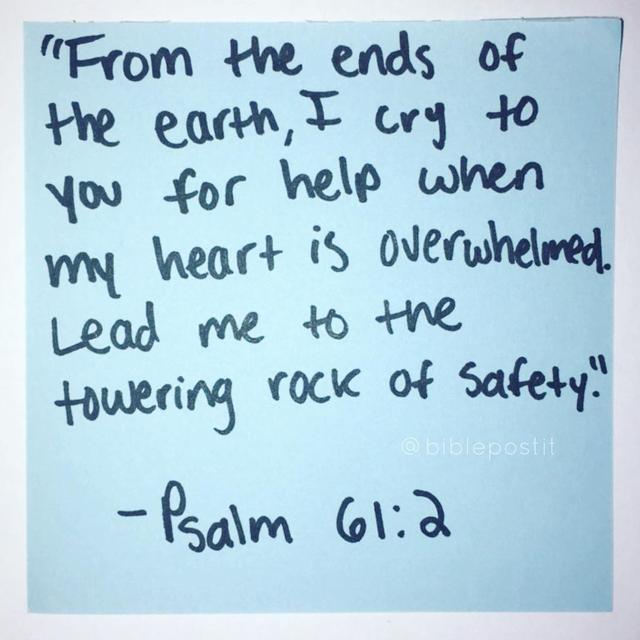 "From the ends of
the earth, I cry to
you for help when
my heart is overwhelmed.
Lead me to the
towering rock of safety."
@biblepostit
-Psalm 61:2